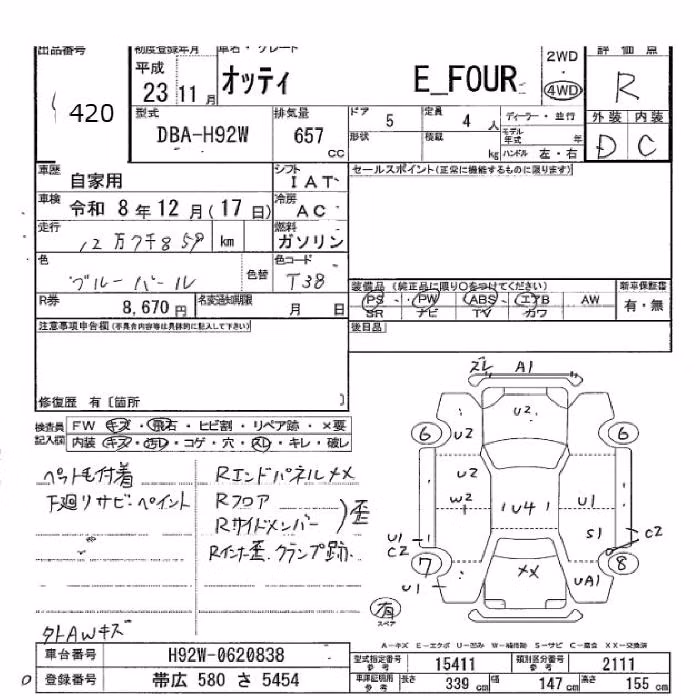 出品番号 初度登録年月 車名・グレード 2WD 評価点
420 平成 23 11月 オッティ E_FOUR ・ 4WD R
型式 排気量 ドア 5 定員 4 人 ディーラー・並行 外装 内装
DBA-H92W 657 cc 形状 積載 kg モデル年式 年 ハンドル 左・右 D C
車歴 自家用 シフト IAT セールスポイント(正常に機能するものに限ります)
車検 令和 8年 12月(17日) 冷房 AC
走行 12万7千859 km 燃料 ガソリン
色 ブルーパール 色替 色コード T38 装備品 (純正品に限り○をつけてください) 新車保証書
PS PW ABS エアB AW 有・無
R券 8,670円 名変通知期限 月 日 SR ナビ TV カワ
注意事項申告欄(不具合内容等は具体的に記入して下さい) 後日品
修復歴 有〔箇所 〕
検査員 FW キズ・飛石・ヒビ割・リペア跡・×要
記入欄 内装 キズ・汚レ・コゲ・穴・スレ・キレ・破レ
ズレ A1
U2
6 U2 6
ペット毛付着 RエンドパネルXX U2
下廻りサビ・ペイント Rフロア W2 1 U4 1 U1
Rサイドメンバー )歪 S1 C2
Rインナ歪.クランプ跡. U1 C2
7 XX 8
U1 UA1
有
スペア
タトAWキズ
A−キズ E−エクボ U−凹み W−補修跡 S−サビ C−腐食 XX−交換済
車台番号 H92W-0620838 型式指定番号 参考 15411 類別区分番号 参考 2111
登録番号 帯広 580 さ 5454 車庫証明用 参考 長さ 339 cm 幅 147 cm 高さ 155 cm